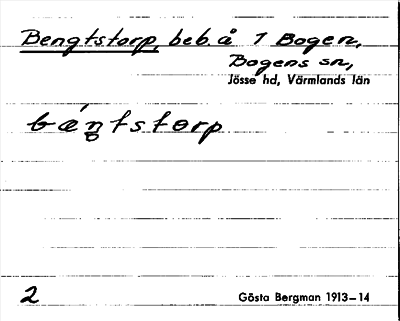 Bengtstorp, beb. å 1 Bogen,
Bogens sn,
Jösse hd, Värmlands län
bǽŋtstorp
2
Gösta Bergman 1913–14